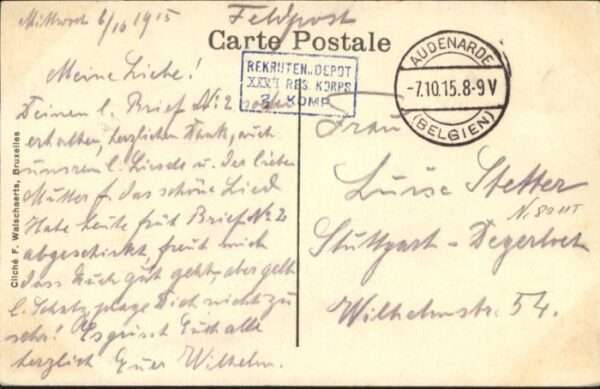 Mittwoch 6/10 1915
Feldpost
Carte Postale
Meine Liebe!
Deinen l. Brief No 2
erhalten, herzlichen Dank, auch
unsrem l. Liesele u. der lieben
Mutter f. das schöne Lied
Habe heute früh Brief No 2
abgeschickt, freut mich
dass Euch gut geht, aber gelt
l. Schatz, plage Dich nicht zu
sehr! Es grüsst Euch alle
herzlich Euer Wilhelm.
REKRUTEN-DEPOT
RES. KORPS
KOMP.
AUDENARDE
-7.10.15.8-9V
(BELGIEN)
Frau
Luise Stetter
Stuttgart-Degerloch
Wilhelmstr. 54.
Cliché F. Walschaerts, Bruxelles